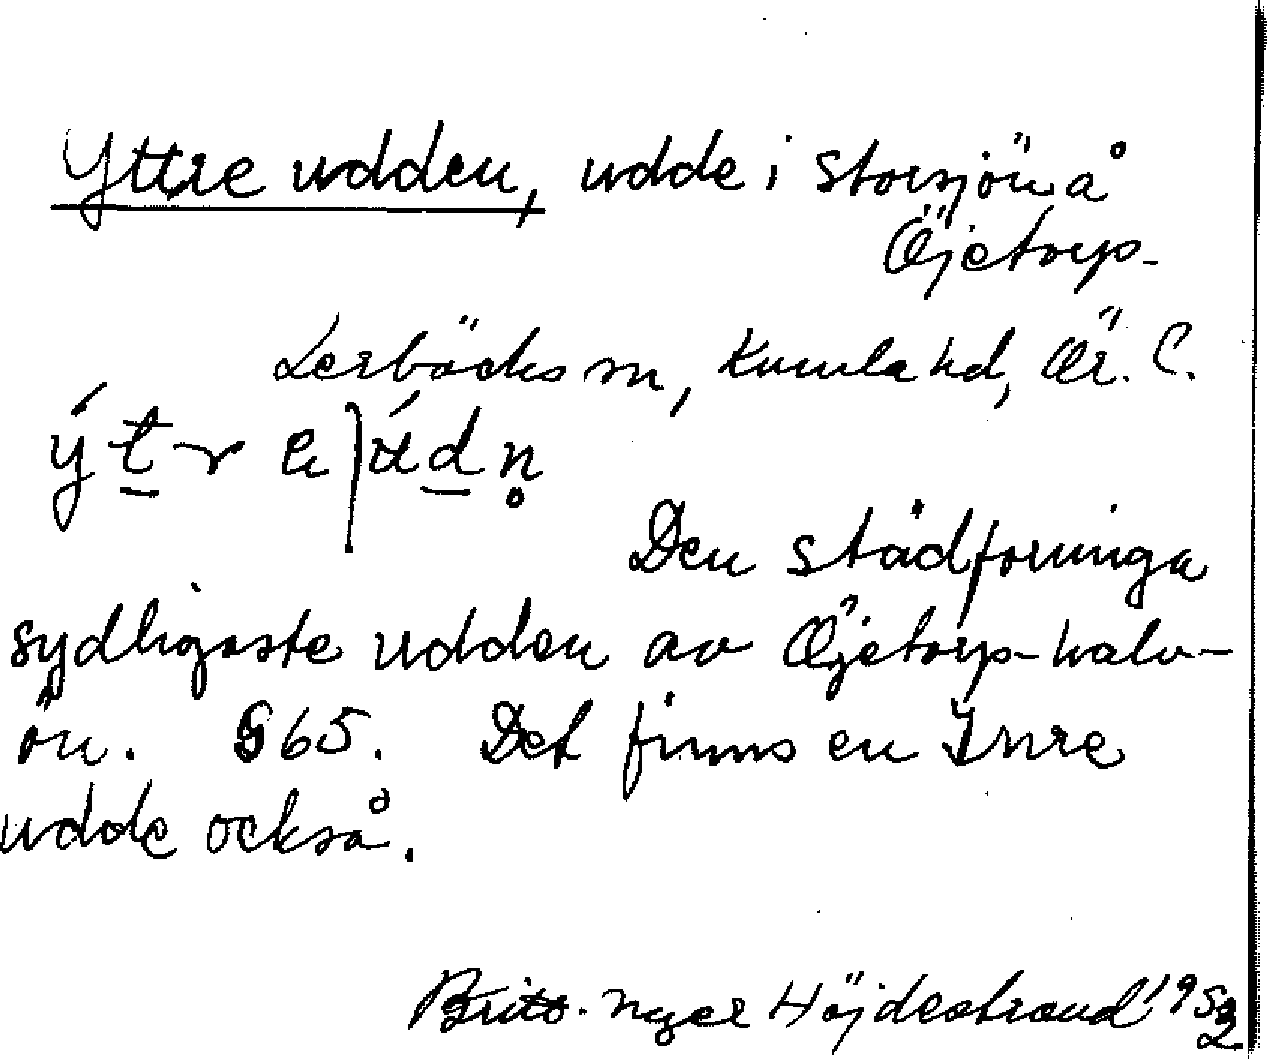 Yttre udden, udde i Storsjön å
Öjetorp-
Lerbäcks sn, Kumla hd, Ör. l.
ý t r e | ú d n̥
Den städformiga
sydligaste udden av Öjetorps-halv-
ön. S 65. Det finns en Inre
udde också.
Britt-Inger Höjdestrand 1952